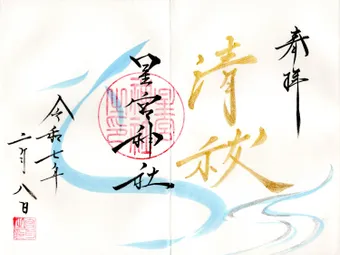 奉拝
清祓
星宮神社
令和七年
月八日